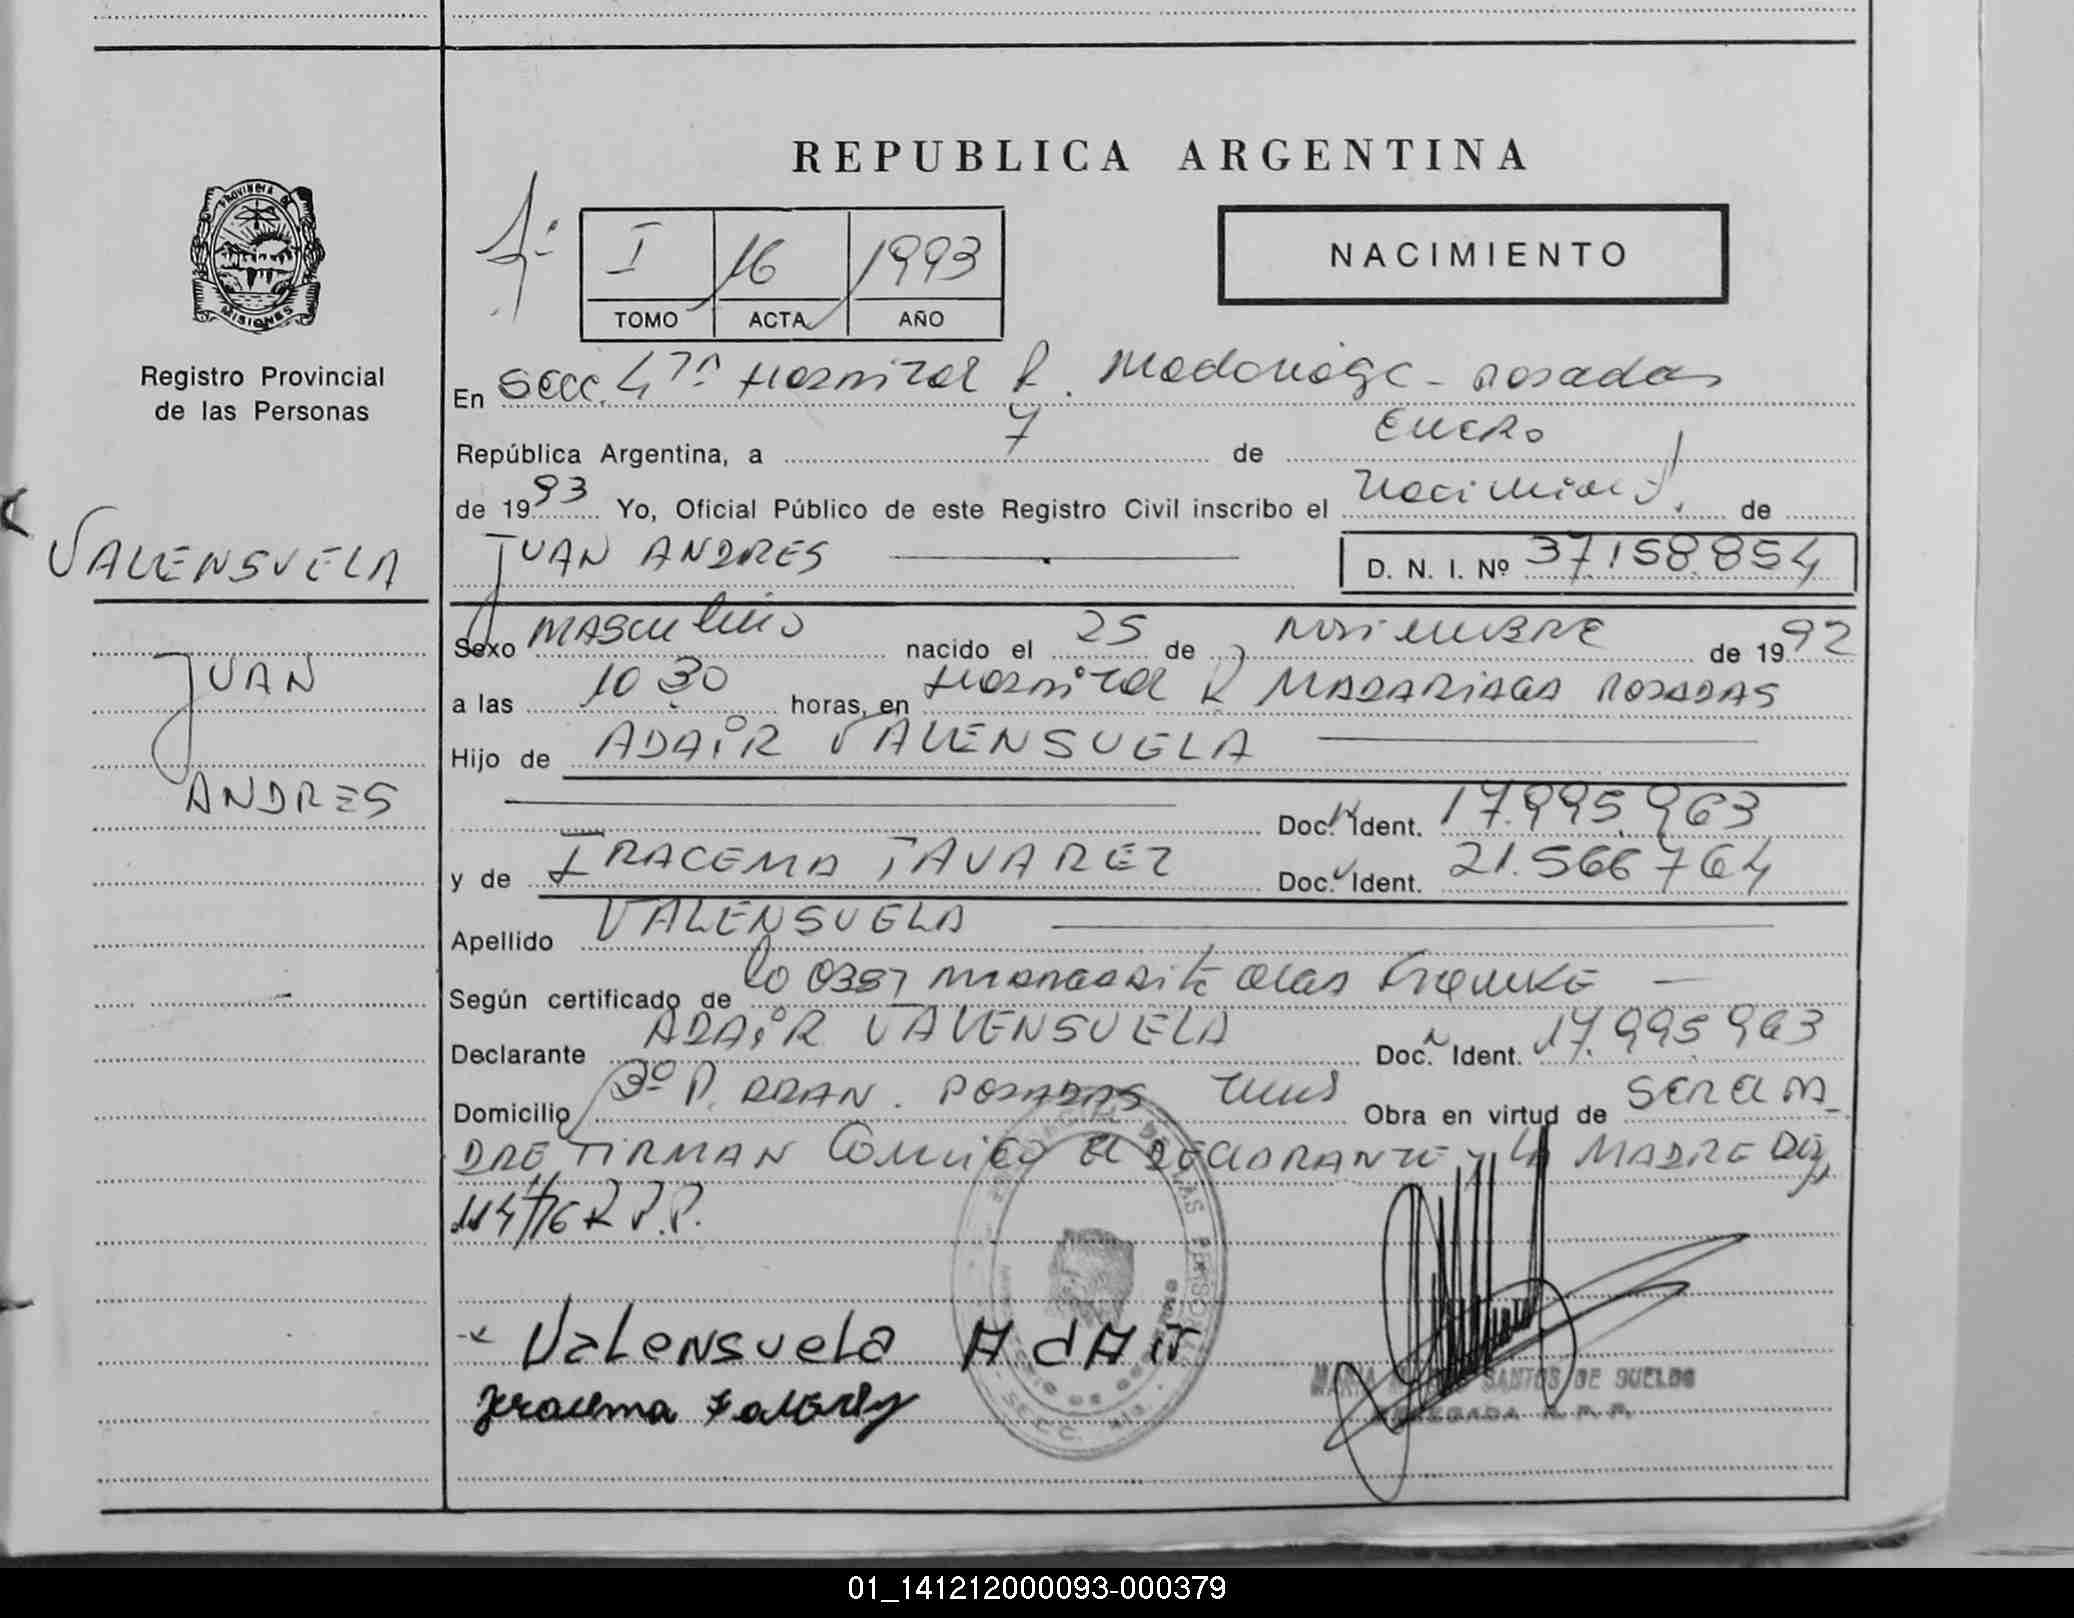 REPUBLICA ARGENTINA
PROVINCIA DE
MISIONES
Registro Provincial
de las Personas
VALENSUELA
JUAN
ANDRES
I 16 1993
TOMO ACTA AÑO
NACIMIENTO
En Secc. 4ta Hospital R. Madariaga - Posadas
República Argentina, a 7 de Enero
de 1993 Yo, Oficial Público de este Registro Civil inscribo el Nacimient. de
JUAN ANDRES D. N. I. Nº 37.158.854
Sexo MASCULINO nacido el 25 de NOVIEMBRE de 1992
a las 10 30 horas, en Hospital R MADARIAGA POSADAS
Hijo de ADAIR VALENSUELA
Doc. Ident. 17.995.963
y de IRACEMA TAVAREZ Doc. Ident. 21.566.764
Apellido VALENSUELA
Según certificado de
Declarante ADAIR VALENSUELA Doc. Ident. 17.995.963
Domicilio POSADAS Obra en virtud de SER EL PA
DRE, FIRMAN CONMIGO EL DECLARANTE Y LA MADRE
R.P.P.
Valensuela Adair
SANTOS DE DUELOS
DELEGADA R. P. P.
01_141212000093-000379